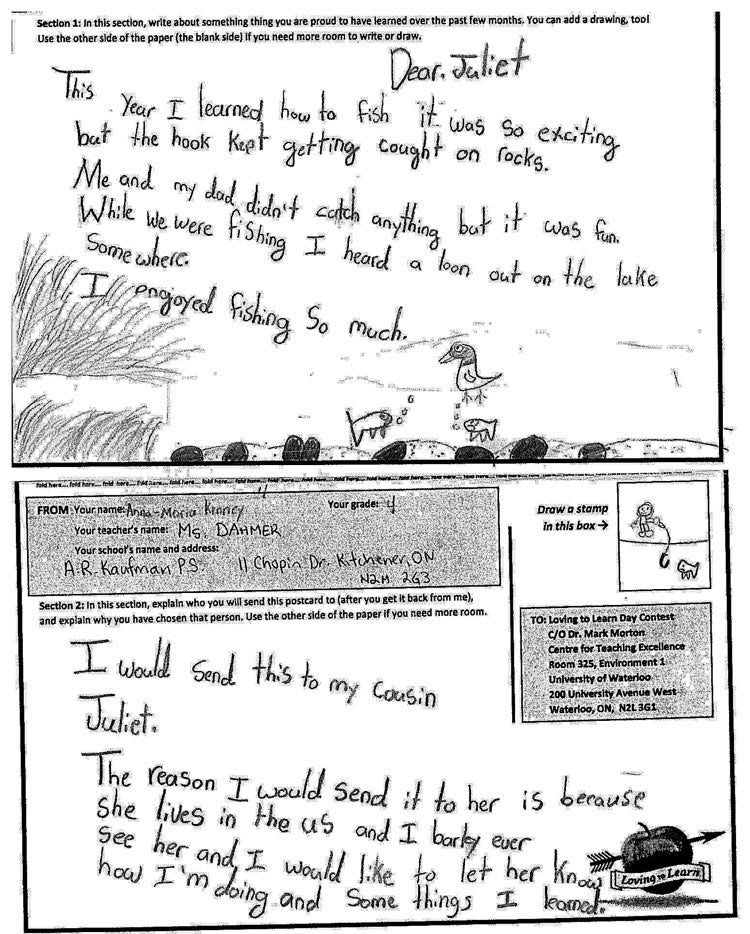 Section 1: In this section, write about something thing you are proud to have learned over the past few months. You can add a drawing, too!
Use the other side of the paper (the blank side) if you need more room to write or draw.
Dear. Juliet
This Year I learned how to fish it was so exciting
but the hook kept getting cought on rocks.
Me and my dad didn't catch anything but it was fun.
While we were fishing I heard a loon out on the lake
Somewhere.
I engoyed fishing So much.
fold here.... fold here.... fold here.... fold here.... fold here.... fold here.... fold here....
FROM Your name: Anna-Maria
Your grade: 4
Your teacher's name: MS. DAHMER
Your school's name and address:
A.R. Kaufman P.S. 11 Chopin Dr. Kitchener, ON
N2M 2G3
Draw a stamp
in this box →
Section 2: In this section, explain who you will send this postcard to (after you get it back from me),
and explain why you have chosen that person. Use the other side of the paper if you need more room.
TO: Loving to Learn Day Contest
C/O Dr. Mark Morton
Centre for Teaching Excellence
Room 325, Environment 1
University of Waterloo
200 University Avenue West
Waterloo, ON, N2L 3G1
I would send this to my Cousin
Juliet.
The reason I would send it to her is because
she lives in the us and I barley ever
see her and I would like to let her know
how I'm doing and Some things I learned.
Loving to Learn